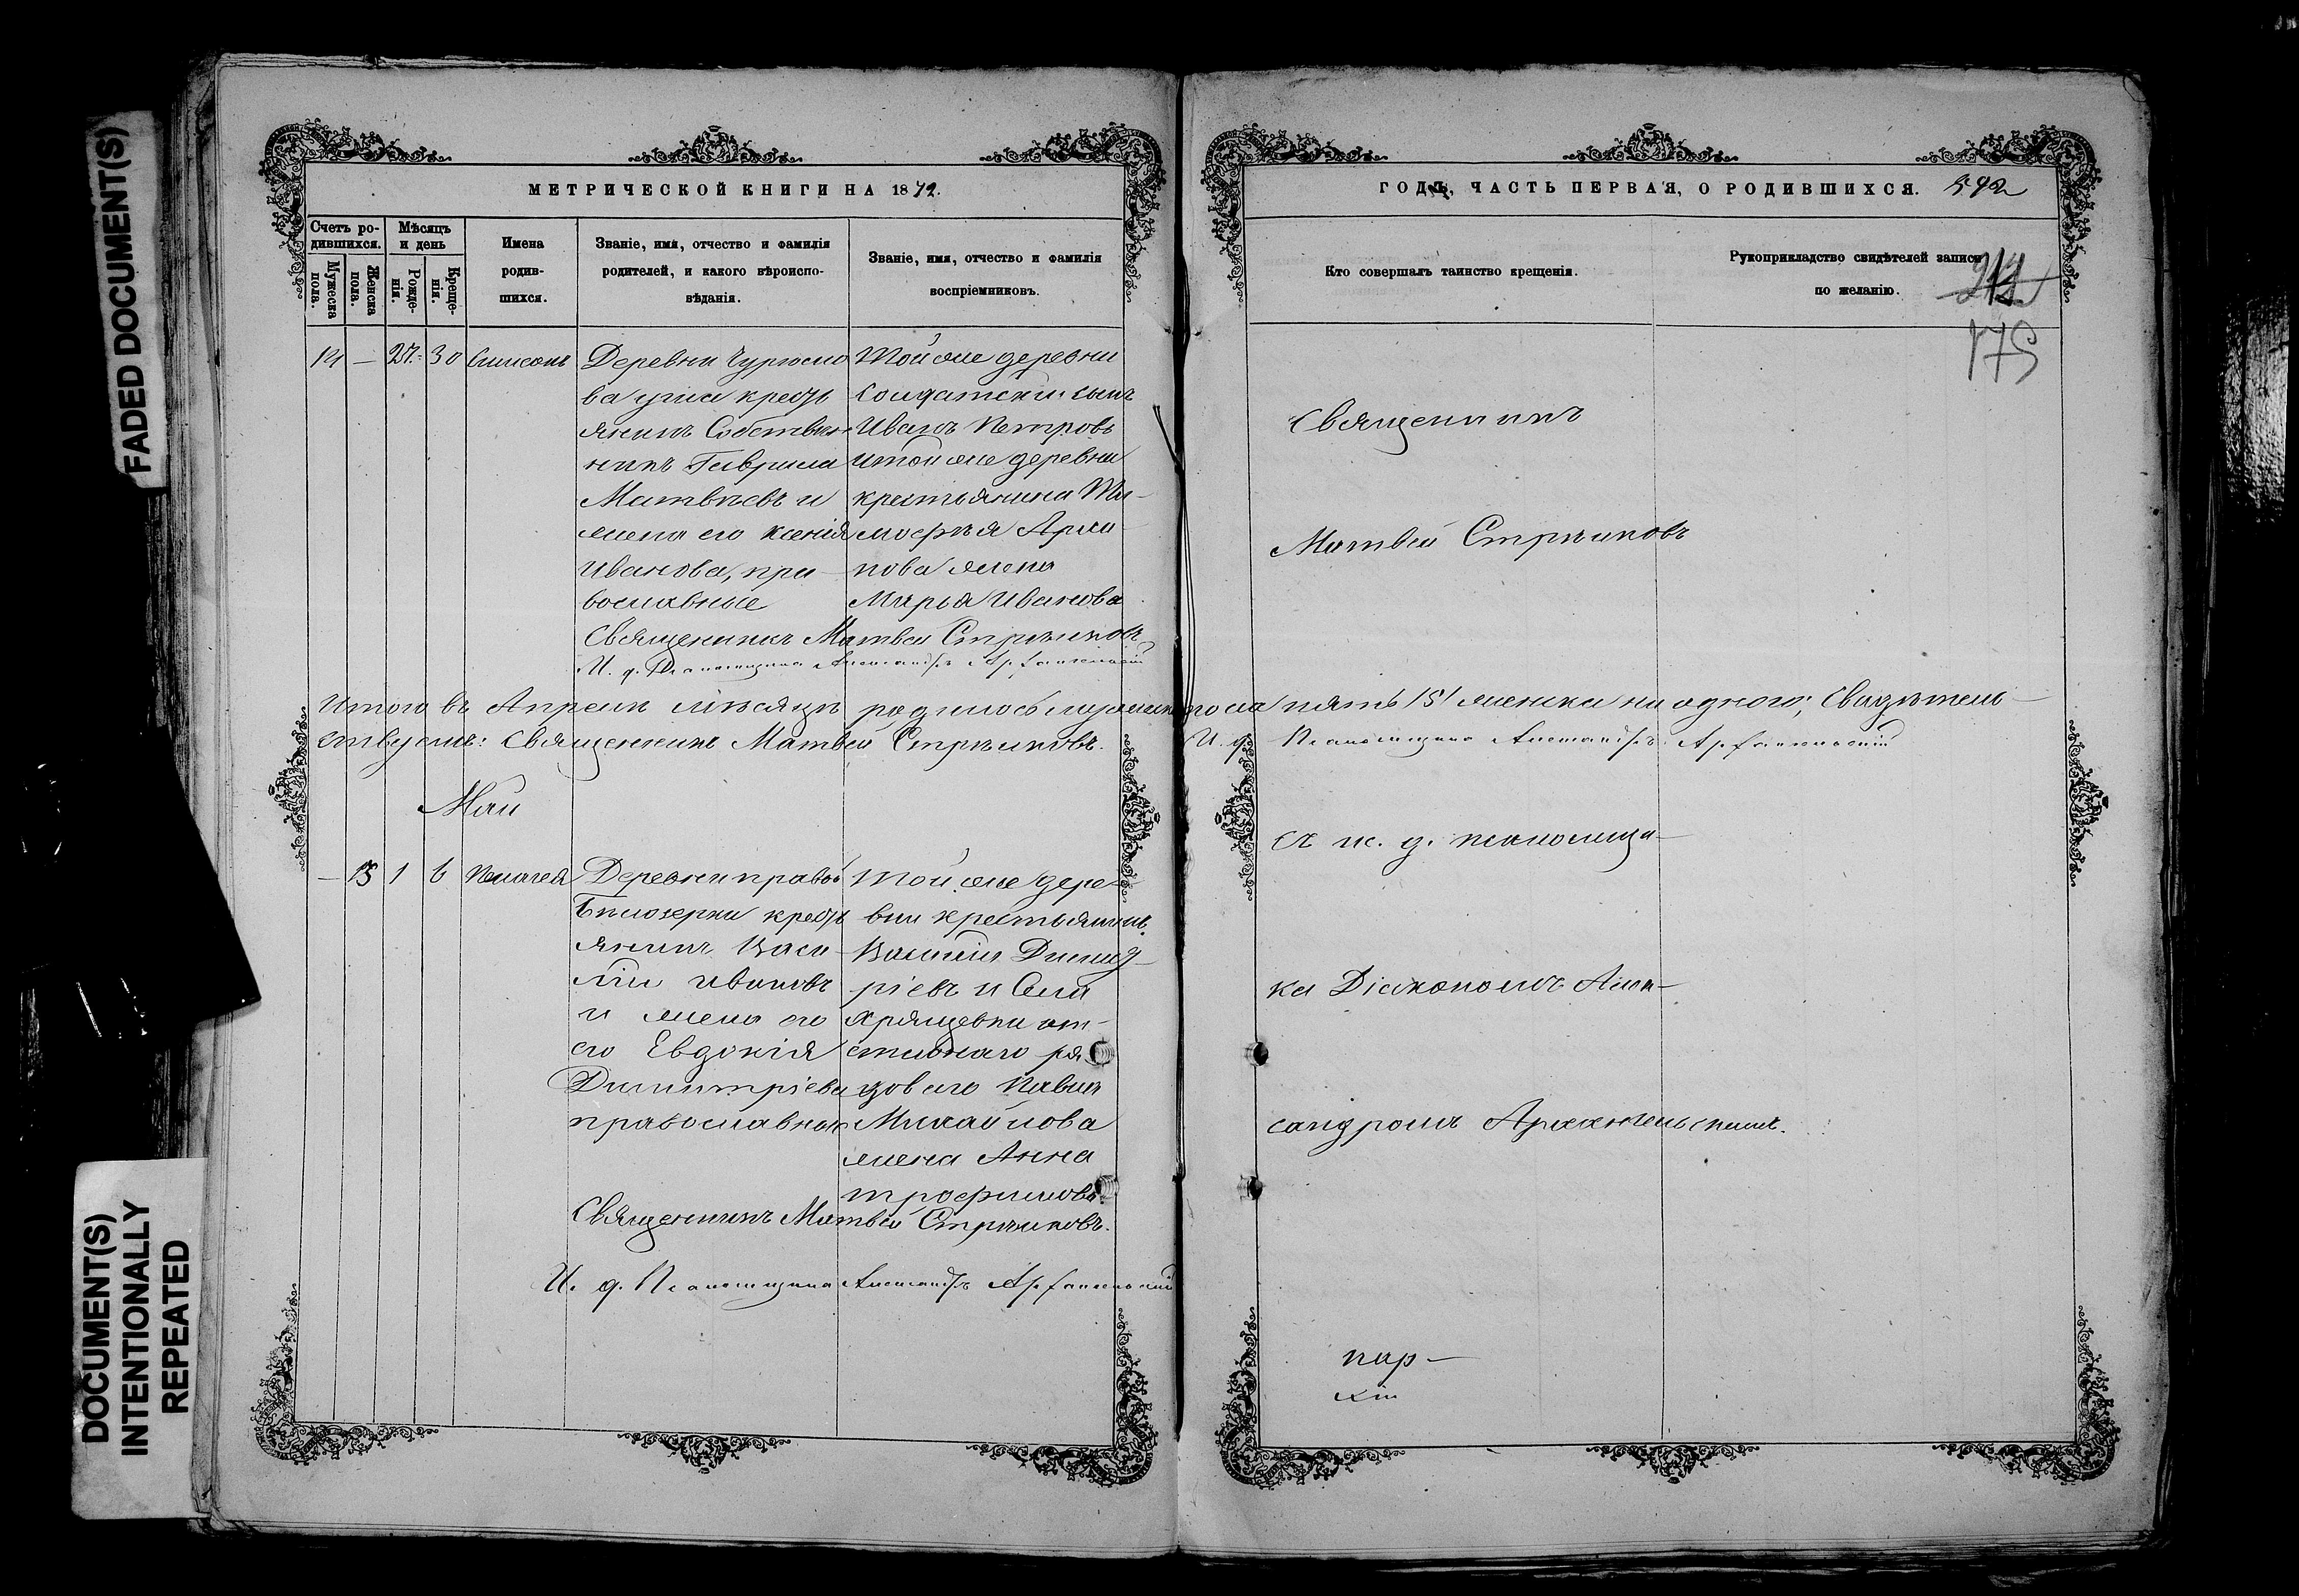 FADED DOCUMENT(S)
DOCUMENT(S)
INTENTIONALLY
REPEATED
МЕТРИЧЕСКОЙ КНИГИ НА 1872.
Счетъ ро-
дившихся.
Мужеска
пола.
Женска
пола.
Мѣсяцъ
и день
Рожде-
нія.
Креще-
нія.
Имена
родив-
шихся.
Званіе, имя, отчество и фамилія
родителей, и какого вѣроиспо-
вѣданія.
Званіе, имя, отчество и фамилія
воспріемниковъ.
14 — 27. 30 Симеонъ
Деревни
крестъ
янинъ Собствен
никъ Гаврила
Матвѣевъ и
жена его Ксенія
Иванова, пра-
вославные
Той же деревни
солдатскій сынъ
Иванъ Петровъ
и той же деревни
крестьянина Ти-
мофея Архи
пова жена
Марья Иванова
Священникъ Матвей Стрѣлковъ
И. д. Псаломщика Александръ Архангельскій
Итого въ Апрелѣ мѣсяцѣ родилось мужеска пола пять /5/ женска ни одного; Свидѣтель-
ствуемъ: Священникъ Матвей Стрѣлковъ.
И. д. Псаломщика Александръ Архангельскій
Май
— 13 1 6 Пелагея
Деревни правой
Бѣлозерки крестъ
янинъ Васи-
лій Ивановъ
и жена его
его Евдокія
Димитріева
православные
Той же дере-
вни крестьянинъ
Василій Димит-
ріевъ и Села
Хрящевки от-
ставнаго ря
доваго Павла
Михайлова
жена Анна
трофимова.
Священникъ Матвей Стрѣлковъ.
И. д. Псаломщика Александръ Архангельскій
ГОДЪ, ЧАСТЬ ПЕРВАЯ, О РОДИВШИХСЯ. 592
Кто совершалъ таинство крещенія.
Рукоприкладство свидѣтелей записи
по желанію.
175
Священникъ
Матвей Стрѣлковъ
съ и. д. псаломщи-
ка Діакономъ Алек-
сандромъ Архангельскимъ.